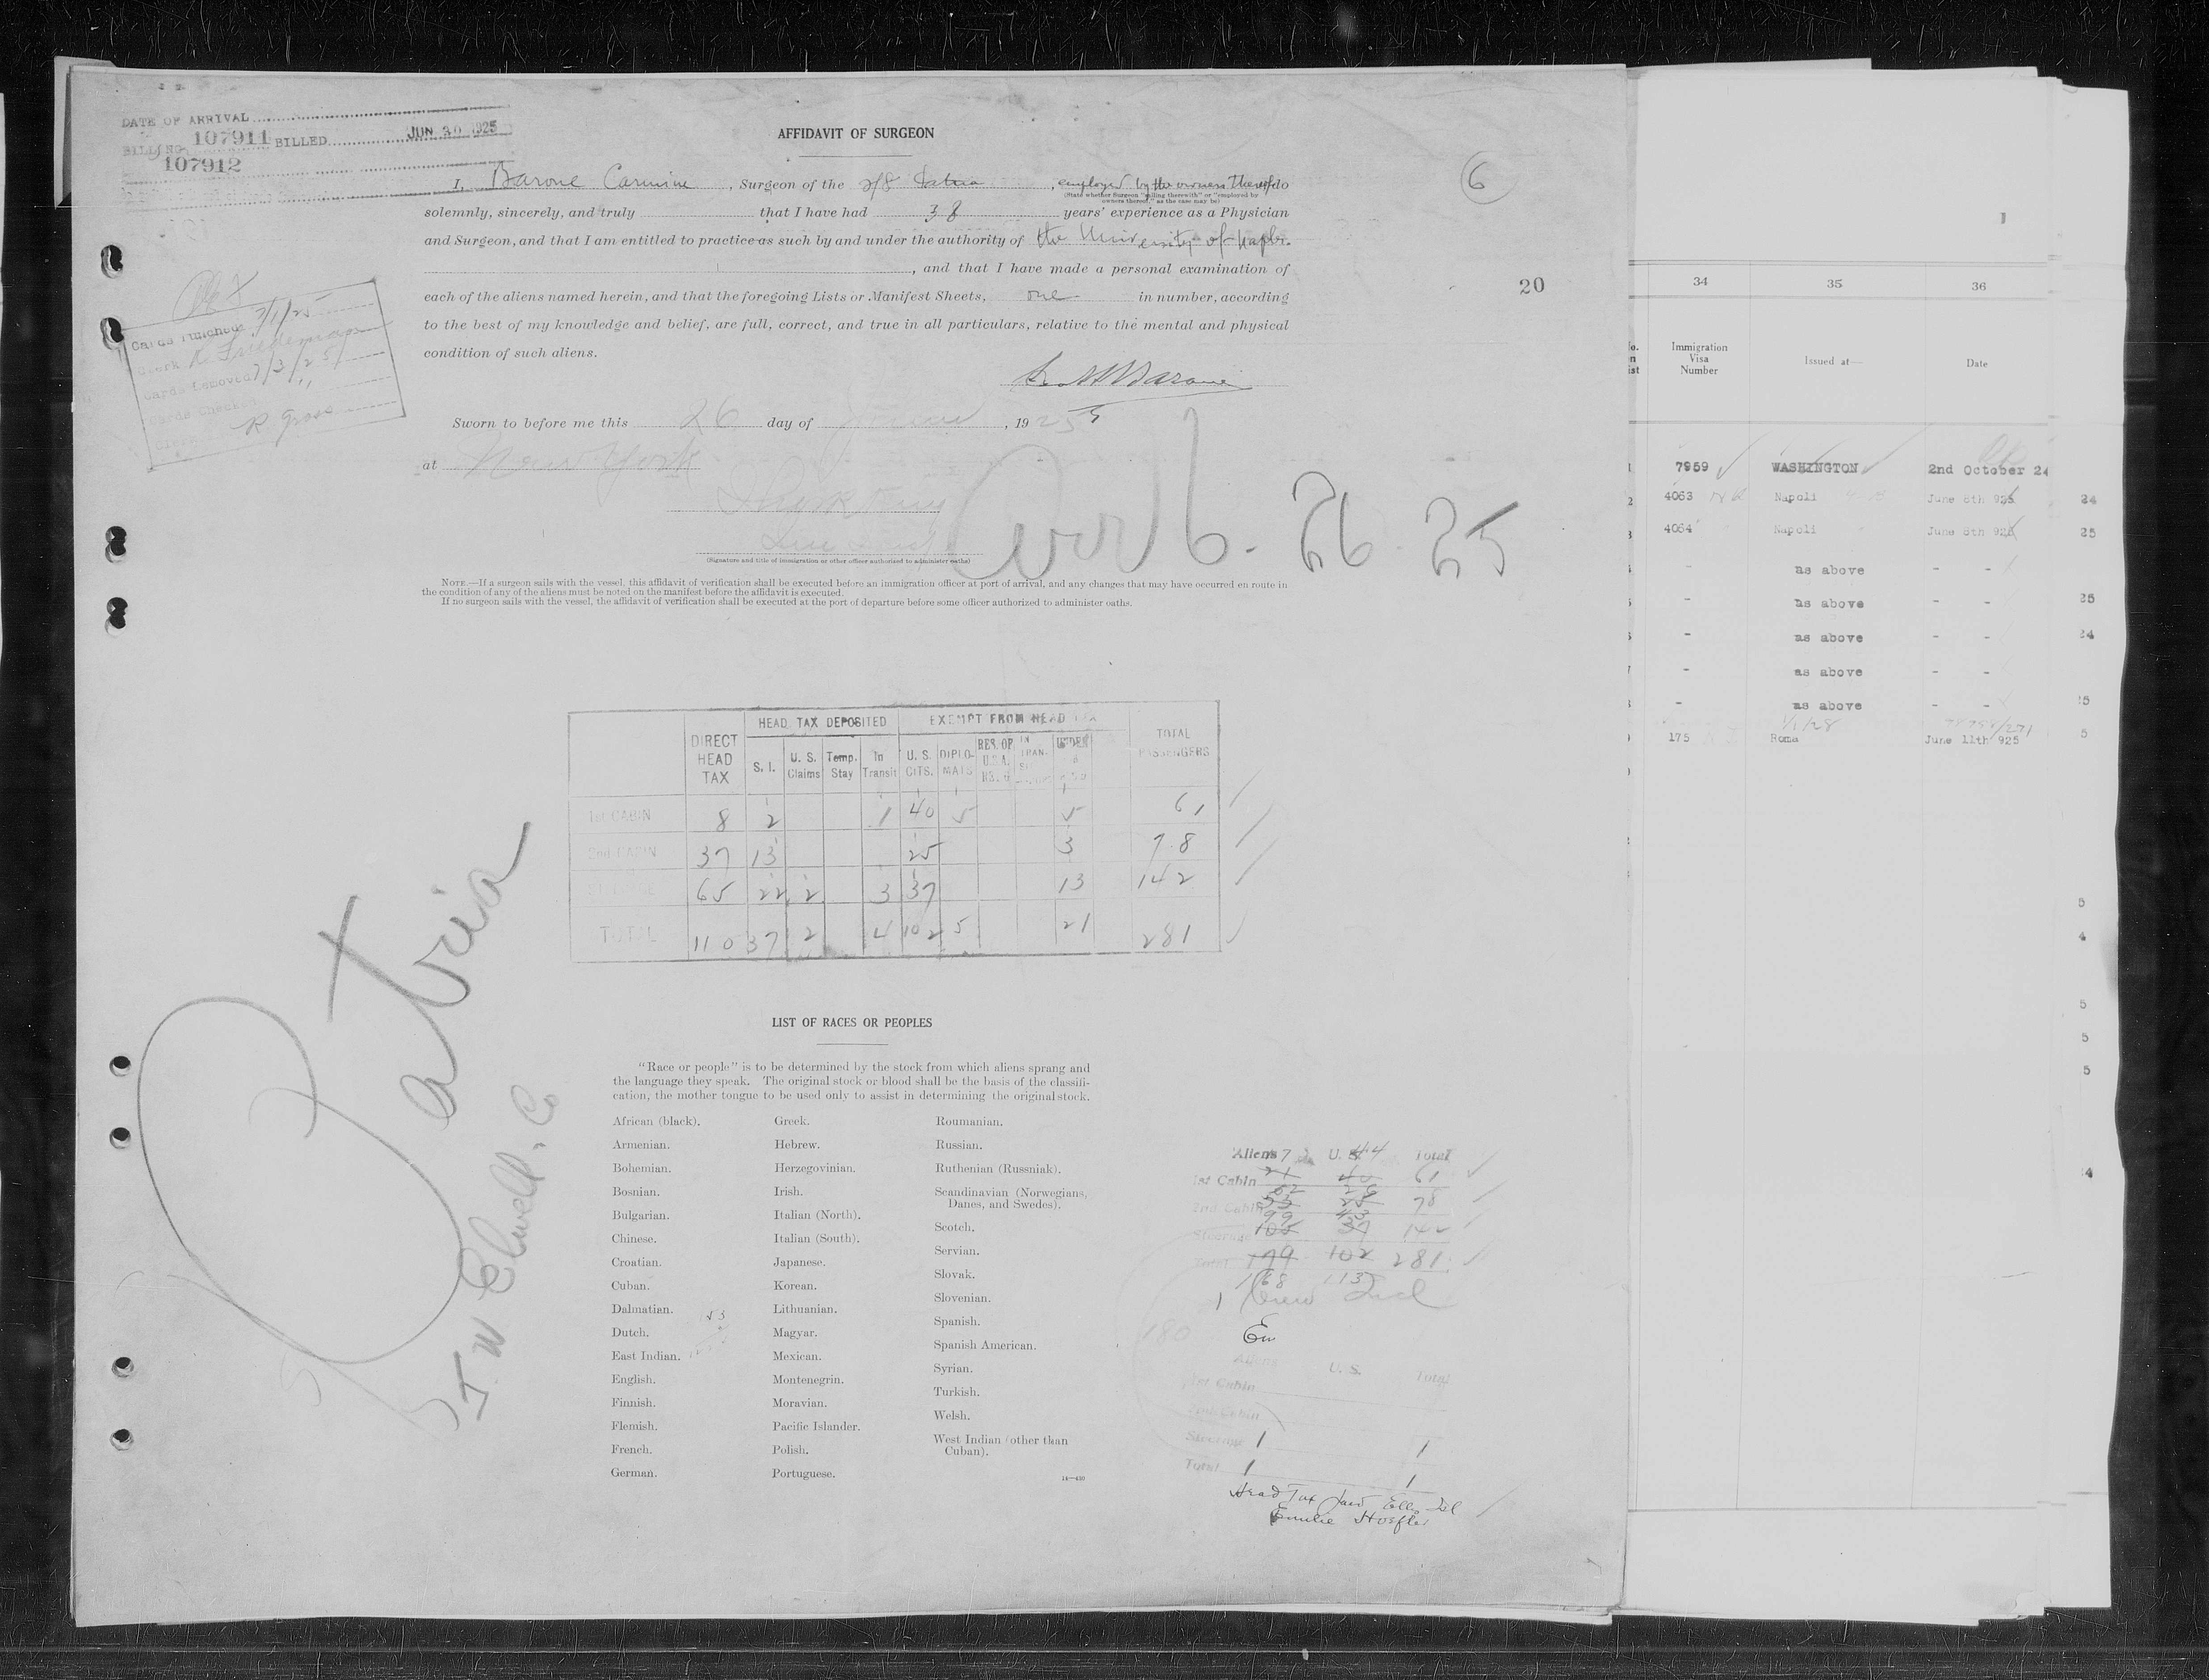 DATE OF ARRIVAL
BILL NO. 107911 BILLED JUN 30 1925
107912
AFFIDAVIT OF SURGEON
6
I, Barone Carmine, Surgeon of the s/s Patria, employed by the owners thereof do
(State whether Surgeon "sailing therewith" or "employed by owners thereof," as the case may be)
solemnly, sincerely, and truly that I have had 38 years' experience as a Physician
and Surgeon, and that I am entitled to practice as such by and under the authority of the University of Naples
, and that I have made a personal examination of
each of the aliens named herein, and that the foregoing Lists or Manifest Sheets, one in number, according
to the best of my knowledge and belief, are full, correct, and true in all particulars, relative to the mental and physical
condition of such aliens.
20
Cards Punched 7/1/25
Clerk R Friedeman
Cards Removed 7/3/25
Cards Checked "
R Gross
Barone
Sworn to before me this 26 day of June, 1925
at New York
Arr 6. 26 25
(Signature and title of immigration or other officer authorized to administer oaths)
NOTE.—If a surgeon sails with the vessel, this affidavit of verification shall be executed before an immigration officer at port of arrival, and any changes that may have occurred en route in
the condition of any of the aliens must be noted on the manifest before the affidavit is executed.
If no surgeon sails with the vessel, the affidavit of verification shall be executed at the port of departure before some officer authorized to administer oaths.
HEAD TAX DEPOSITED EXEMPT FROM HEAD TAX
DIRECT HEAD TAX S. I. U. S. Claims Temp. Stay In Transit U. S. CITS. DIPLOMATS RES. OF U.S.A. IN TRAN- UNDER TOTAL PASSENGERS
1st CABIN 8 2 1 40 5 5 61
2nd CABIN 37 13 25 3 78
65 22 2 3 37 13 142
TOTAL 110 37 2 4 102 5 21 281
Patria
J. W Elwell. Co
LIST OF RACES OR PEOPLES
"Race or people" is to be determined by the stock from which aliens sprang and
the language they speak. The original stock or blood shall be the basis of the classifi-
cation, the mother tongue to be used only to assist in determining the original stock.
African (black).
Armenian.
Bohemian.
Bosnian.
Bulgarian.
Chinese.
Croatian.
Cuban.
Dalmatian.
Dutch.
East Indian.
English.
Finnish.
Flemish.
French.
German.
Greek.
Hebrew.
Herzegovinian.
Irish.
Italian (North).
Italian (South).
Japanese.
Korean.
Lithuanian.
Magyar.
Mexican.
Montenegrin.
Moravian.
Pacific Islander.
Polish.
Portuguese.
Roumanian.
Russian.
Ruthenian (Russniak).
Scandinavian (Norwegians,
Danes, and Swedes).
Scotch.
Servian.
Slovak.
Slovenian.
Spanish.
Spanish American.
Syrian.
Turkish.
Welsh.
West Indian (other than
Cuban).
14—430
53
Aliens U. S. 44 Total
1st Cabin 21 40 61
2nd Cabin 53 78
Steerage 105 37 142
Total 179 102 281
168 113
1 Crew Incl
180
Em
Aliens U. S. Total
1st Cabin
2nd Cabin
Steerage 1 1
Total 1 1
Head Tax paid Ellis Isl
Emilie Hoefler
1
34 35 36
Immigration Visa Number Issued at— Date
7959 WASHINGTON 2nd October 24
4063 Napoli June 8th 925 24
4064 Napoli June 8th 925 25
- as above - -
- as above - - 25
- as above - - 24
- as above - -
- as above - - 25
175 Roma June 11th 925 5
5
4
5
5
5
4